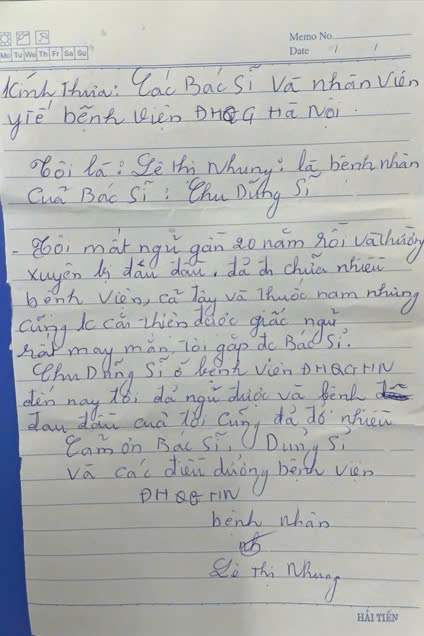 Memo No.
Mo Tu We Th Fr Sa Su
Date / /
Kính Thưa: Các Bác Sĩ Và nhân Viên
y tế bệnh viện ĐHQG Hà Nội.
Tôi là: Lê Thị Nhung: là bệnh nhân
Của Bác Sĩ: Chu Dũng Sĩ
- Tôi mất ngủ gần 20 năm rồi và thường
xuyên bị đau đầu. đã đi chữa nhiều
bệnh viện, cả Tây và Thuốc nam nhưng
cũng k cải thiện được giấc ngủ
rất may mắn, Tôi gặp đc Bác Sĩ.
Chu Dũng Sĩ ở bệnh viện ĐHQGHN
đến nay tôi đã ngủ được và bệnh
đau đầu của tôi cũng đã đỡ nhiều
Cảm ơn Bác Sĩ, Dũng Sĩ
và các điều dưỡng bệnh viện
ĐHQGHN
bệnh nhân
Lê Thị Nhung
HẢI TIẾN